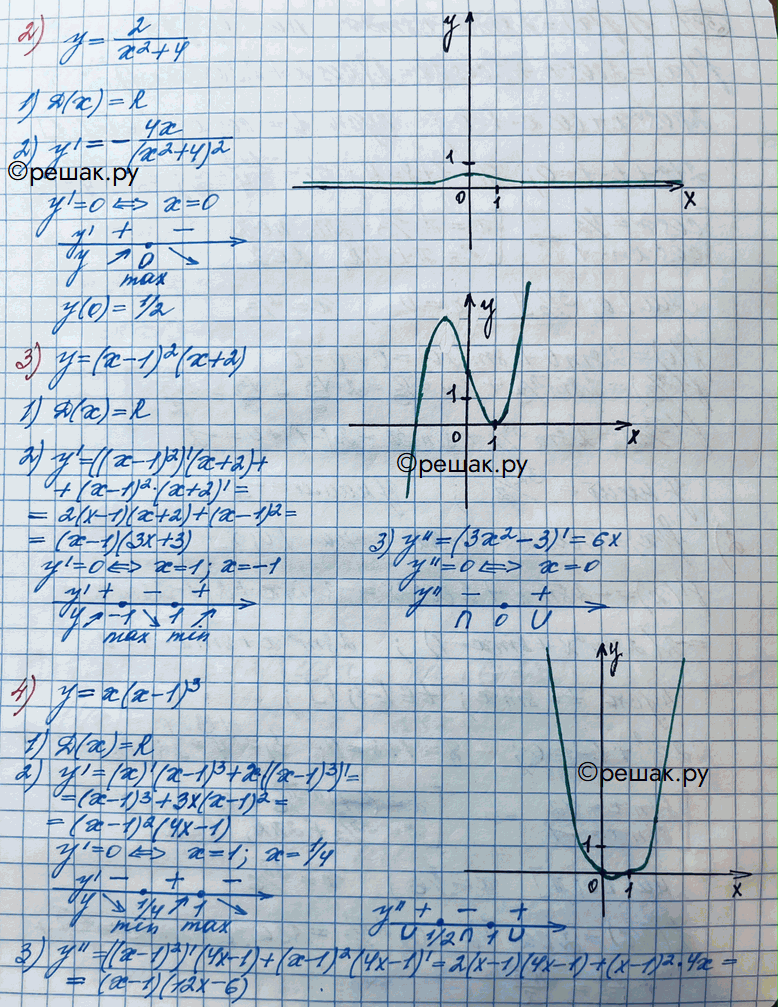 2) y = 2/(x²+4)
1) D(x) = R
2) y' = - 4x/(x²+4)²
©решак.ру
y'=0 <=> x=0
y' + −
y 0
max
y(0) = 1/2
y
1
0 1 x
3) y=(x-1)²(x+2)
1) D(x)=R
2) y'=((x-1)²)'(x+2)+
+(x-1)²·(x+2)'=
= 2(x-1)(x+2)+(x-1)²=
= (x-1)(3x+3)
y'=0 <=> x=1; x=-1
y' + − +
y -1 1
max min
y
1
0 1 x
©решак.ру
3) y''=(3x²-3)'=6x
y''=0 <=> x=0
y'' − +
∩ 0 ∪
4) y=x(x-1)³
1) D(x)=R
2) y'=(x)'(x-1)³+x((x-1)³)'=
=(x-1)³+3x(x-1)²=
= (x-1)²(4x-1)
y'=0 <=> x=1; x=1/4
y' − + −
y 1/4 1
min max
y
©решак.ру
1
0 1 x
y'' + − +
∪ 1/2 ∩ 1 ∪
3) y''=((x-1)²)'(4x-1)+(x-1)²(4x-1)'=2(x-1)(4x-1)+(x-1)²·4x=
= (x-1)(12x-6)